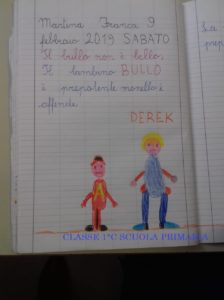 Martina Franca 9
febbraio 2019 SABATO
Il bullo non è bello.
Il bambino BULLO
è prepotente monello e
offende.
DEREK
A
CLASSE 1°C SCUOLA PRIMARIA